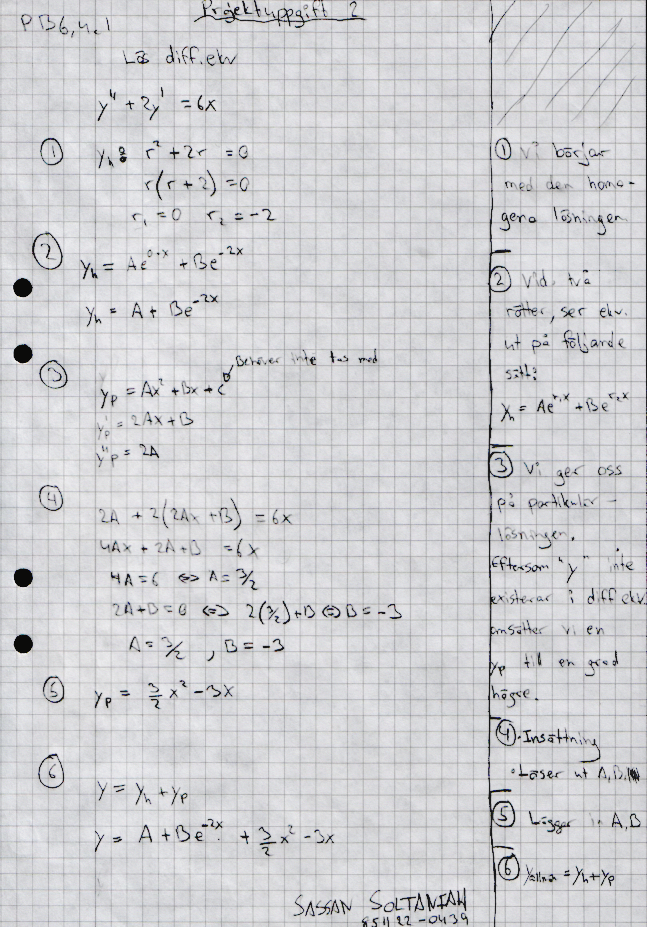 Projektuppgift 2
PB6,4.1
Lös diff.ekv
y" + 2y' = 6x
① yₕ: r² + 2r = 0
r(r + 2) = 0
r₁ = 0 r₂ = -2
② yₕ = Ae^(0·x) + Be^(-2x)
yₕ = A + Be^(-2x)
Behöver inte tas med
③ yₚ = Ax² + Bx + C
y'ₚ = 2Ax + B
y"ₚ = 2A
④
2A + 2(2Ax + B) = 6x
4Ax + 2A + B = 6x
4A = 6 ⇔ A = 3/2
2A + B = 0 ⇔ 2(3/2) + B ⇔ B = -3
A = 3/2 , B = -3
⑤ yₚ = 3/2 x² - 3x
⑥
y = yₕ + yₚ
y = A + Be^(-2x) + 3/2 x² - 3x
① Vi börjar
med den homo-
gena lösningen
② Vid två
rötter, ser ekv.
ut på följande
sätt:
yₕ = Ae^(r₁x) + Be^(r₂x)
③ Vi ger oss
på partikulär-
lösningen.
Eftersom "y" inte
existerar i diffekv.
ansätter vi en
yₚ till en grad
högre.
④ · Insättning
· Löser ut A, B
⑤ Lägger in A, B
⑥ y allmän = yₕ + yₚ
SASSAN SOLTANIAH
851122-0439